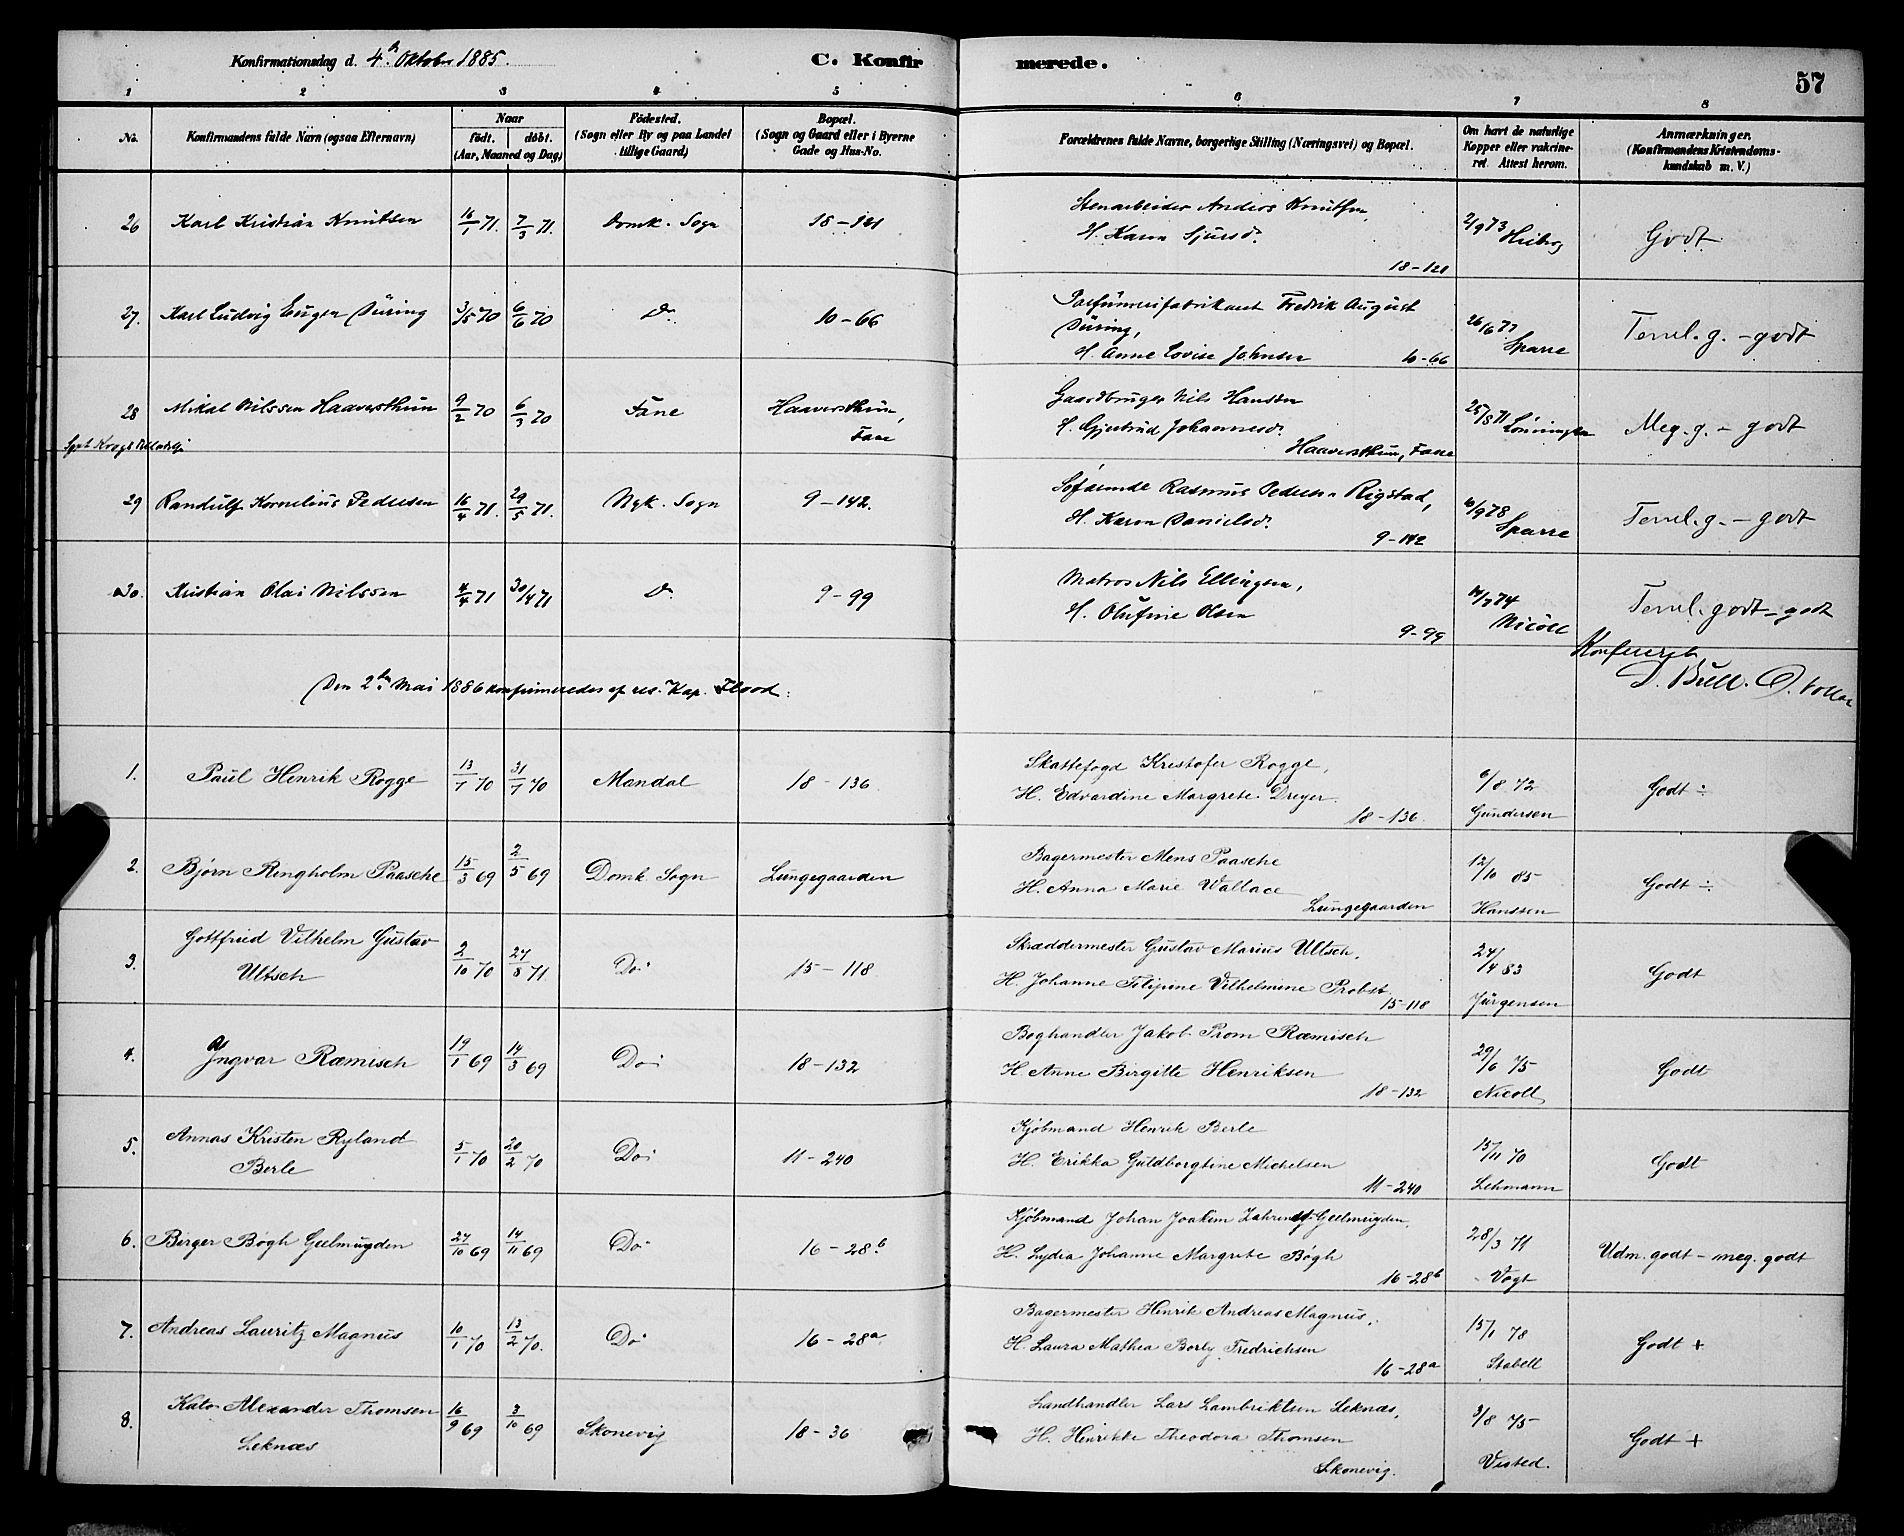 Konfirmationsdag d. 4de Oktober 1885.
C. Konfirmerede.
57
1 2 3 4 5 6 7 8
No.
Konfirmandens fulde Navn (ogsaa Efternavn)
Naar
födt. döbt.
(Aar, Maaned og Dag)
Födested.
(Sogn eller By og paa Landet
tillige Gaard)
Bopæl.
(Sogn og Gaard eller i Byerne
Gade og Hus-No.
Forældrenes fulde Navne, borgerlige Stilling (Næringsvei) og Bopæl.
Om havt de naturlige
Kopper eller vakcine-
ret Attest herom.
Anmærkninger.
(Konfirmandens Kristendoms-
kundskab m. V.)
26 Karl Kristian Knutsen 16/1 71. 7/3 71. Domk. Sogn 18-121
Stenarbeider Anders Knutsen,
H. Karen Sjursd.
18-121
2/9 73 Heiberg
Godt
27. Karl Ludvig Eugen Düring 3/5 70 6/6 70 Do. 10-66
Parfümerifabrikant Fredrik August
Düring,
H. Anne Lovise Johnsen 10-66
26/6 77
Sparre
Temel. g. - godt
28 Mikal Nilssen Haaversthun 9/2 70 6/3 70 Fane Haaversthun,
Fane
Gaardbruger Nils Hansen
H. Gjertrud Johannesd.
Haaversthun, Fane
25/8 71
Meg. g. - godt
29 Randulf Kornelius Pedersen 16/4 71. 29/5 71. Nyk. Sogn 9-142.
Søfarende Rasmus Pedersen Rigstad,
H. Karen Danielsd.
9-142
9 78
Sparre
Temel. g. - godt
30. Kristian Olai Nilssen 4/4 71 30/4 71 Do. 9-99
Matros Nils Ellingsen,
H. Olufine Olsen
9-99
7 74
Nicoll
Temel. godt - godt
Konfereret
D. Bull.
Den 2den Mai 1886 konfirmeredes af res. Kap. Flood:
1. Paul Henrik Rogge 13/1 70 31/7 70 Mandal 18-136
Skattefogd Kristofer Rogge,
H. Edvardine Margrete Dreyer.
18-136.
6/8 72
Gundersen
Godt ÷
2. Bjørn Ringholm Paasche 15/3 69 2/5 69 Domk. Sogn Lungegaarden
Bagermester Mens Paasche
H. Anna Marie Wallace
Lungegaarden
12/10 85
Hanssen
Godt ÷
3. Gottfried Vilhelm Gustav
Ultsch
2/10 70 27/8 71. Do. 15-118
Skræddermester Gustav Marius Ultsch,
H. Johanne Filipine Vilhelmine Probst
15-118
24/4 83
Jürgensen
Godt
4. Ingvar Ræmisch 19/1 69 14/3 69 Do. 18-132
Boghandler Jakob Prom Ræmisch
H. Anne Birgitte Henriksen
18-132
29/6 75
Nicoll
Godt
5. Annas Kristen Ryland
Berle
5/1 70 20/2 70 Do. 11-240
Kjøbmand Henrik Berle
H. Erikka Guldborgtine Michelsen
11-240
15/11 70
Lehmann
Godt
6. Berger Bøgh Geelmuyden 27/10 69 14/11 69 Do. 16-28b
Kjøbmand Johan Joakim Geelmuyden.
H. Lydia Johanne Margrete Bøgh
16-28b
28/3 71
Vogt
Udm. godt - meg. godt
7. Andreas Lauritz Magnus 10/1 70 13/2 70. Do. 16-28a
Bagermester Henrik Andreas Magnus,
H. Laura Mathea Borly Fredrichsen
16-28a
15/1 78
Stabell
Godt +
8. Kato Alexander Thomsen
Leknæs
16/9 69 3/10 69 Skonevig 18-36
Landhandler Lars Lambriktsen Leknæs,
H. Henrikke Theodora Thomsen
Skonevig.
3/8 75
Visted.
Godt +